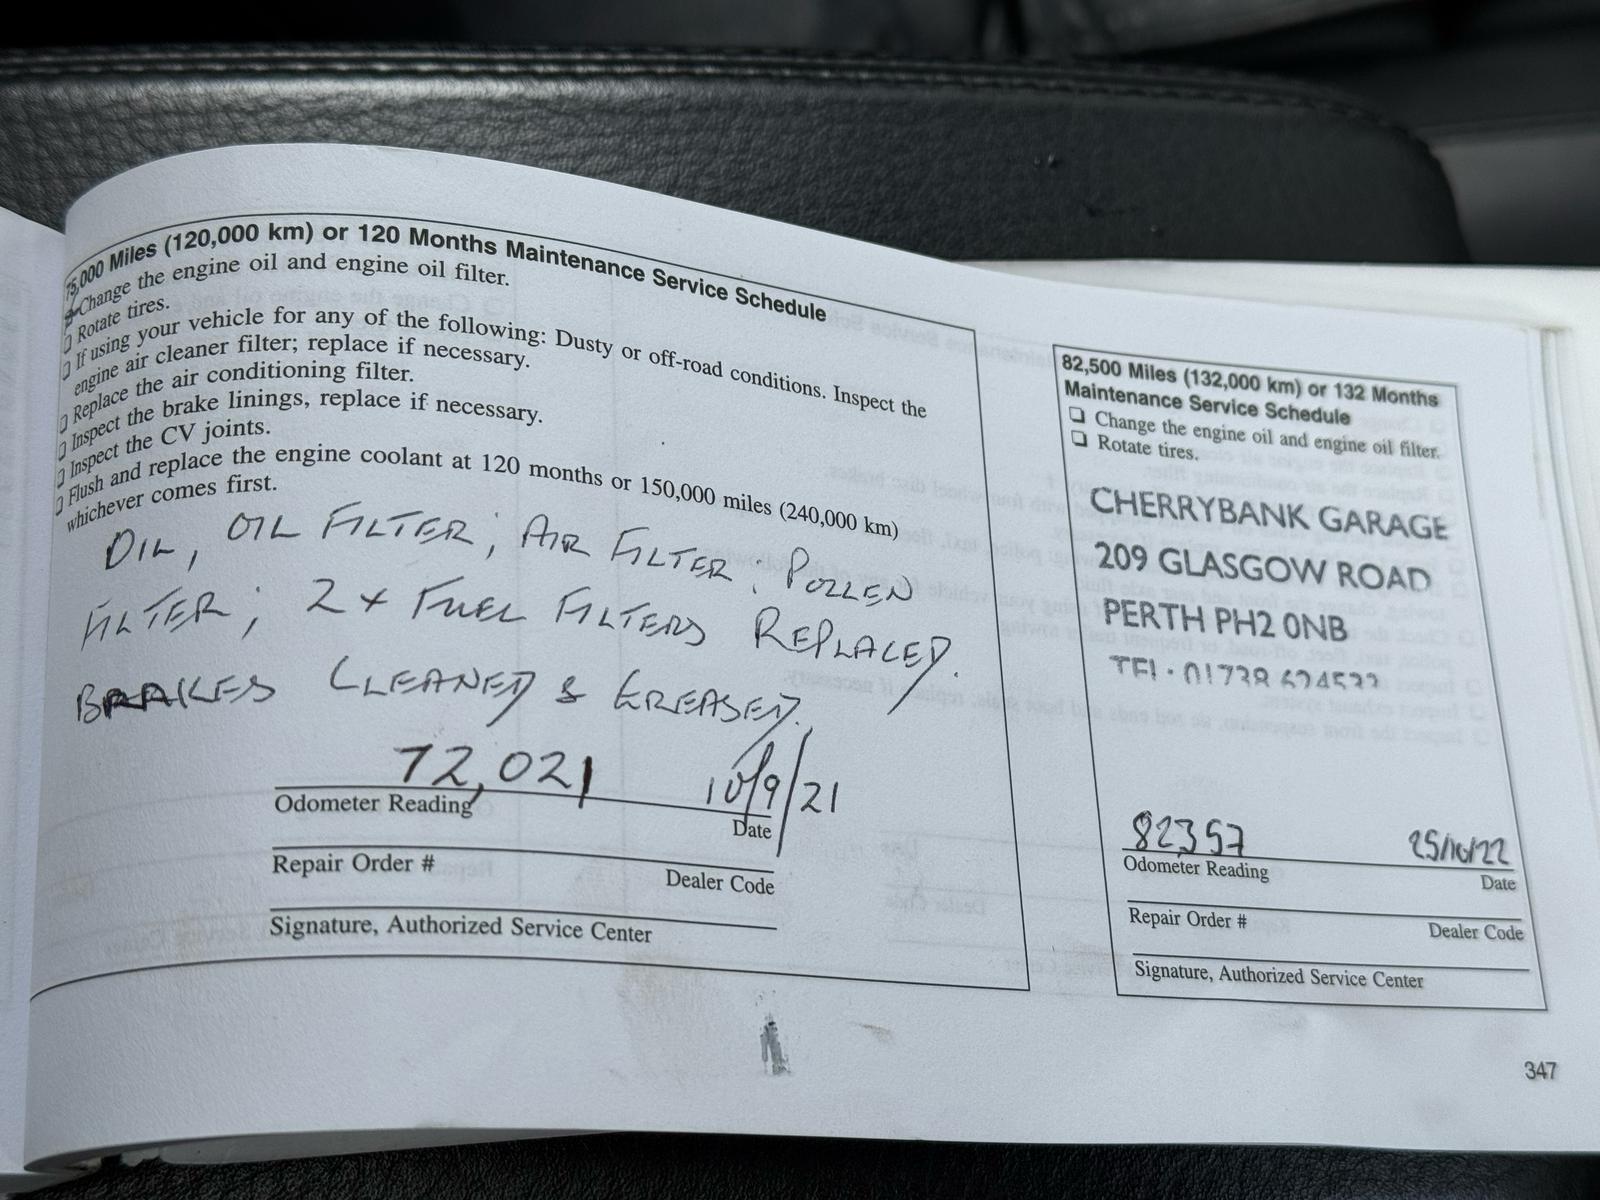 75,000 Miles (120,000 km) or 120 Months Maintenance Service Schedule
Change the engine oil and engine oil filter.
❏ Rotate tires.
❏ If using your vehicle for any of the following: Dusty or off-road conditions. Inspect the
engine air cleaner filter; replace if necessary.
❏ Replace the air conditioning filter.
❏ Inspect the brake linings, replace if necessary.
❏ Inspect the CV joints.
❏ Flush and replace the engine coolant at 120 months or 150,000 miles (240,000 km)
whichever comes first.
OIL, OIL FILTER; AIR FILTER; POLLEN
FILTER; 2x FUEL FILTERS REPLACED.
BRAKES CLEANED & GREASED.
72,021 10/9/21
Odometer Reading Date
Repair Order # Dealer Code
Signature, Authorized Service Center
82,500 Miles (132,000 km) or 132 Months
Maintenance Service Schedule
❏ Change the engine oil and engine oil filter.
❏ Rotate tires.
CHERRYBANK GARAGE
209 GLASGOW ROAD
PERTH PH2 0NB
TEL: 01738 624533
82357 25/10/22
Odometer Reading Date
Repair Order # Dealer Code
Signature, Authorized Service Center
347